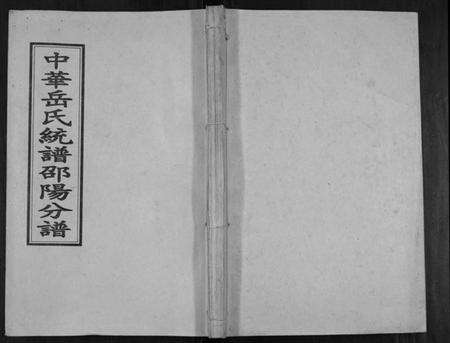 中華岳氏統譜邵陽分譜